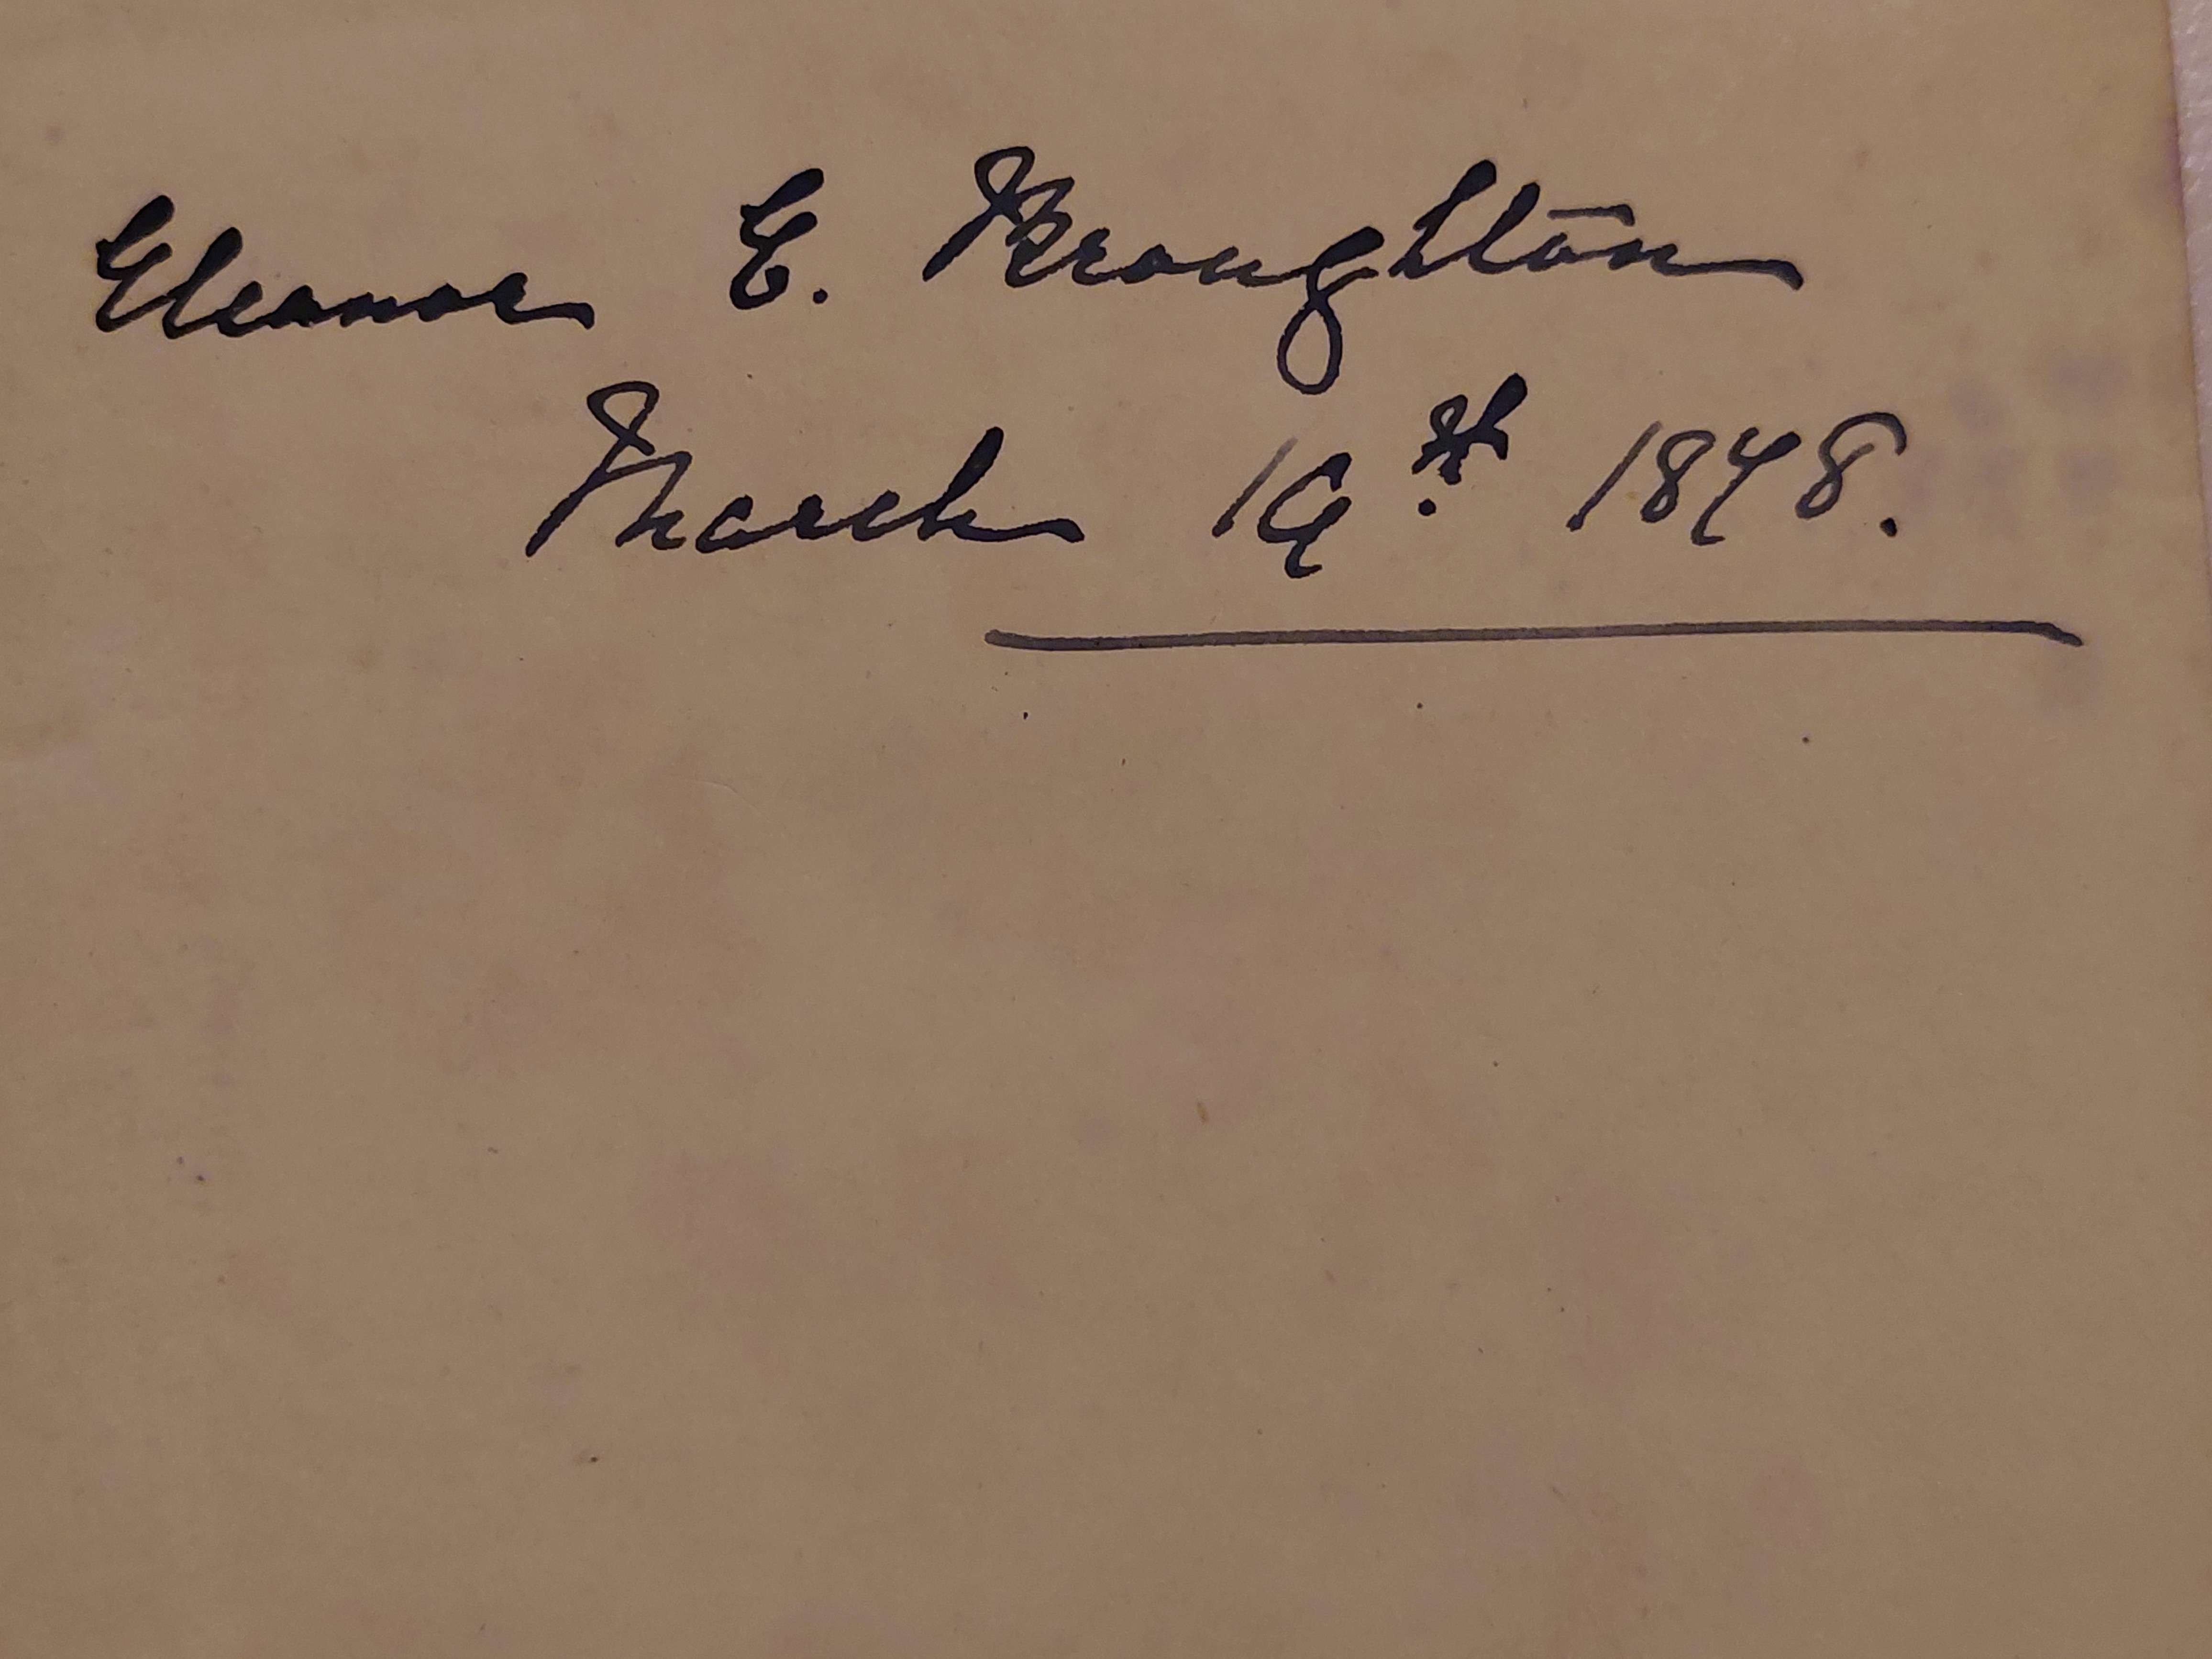 Eleanor E. Broughton
March 19th 1878.